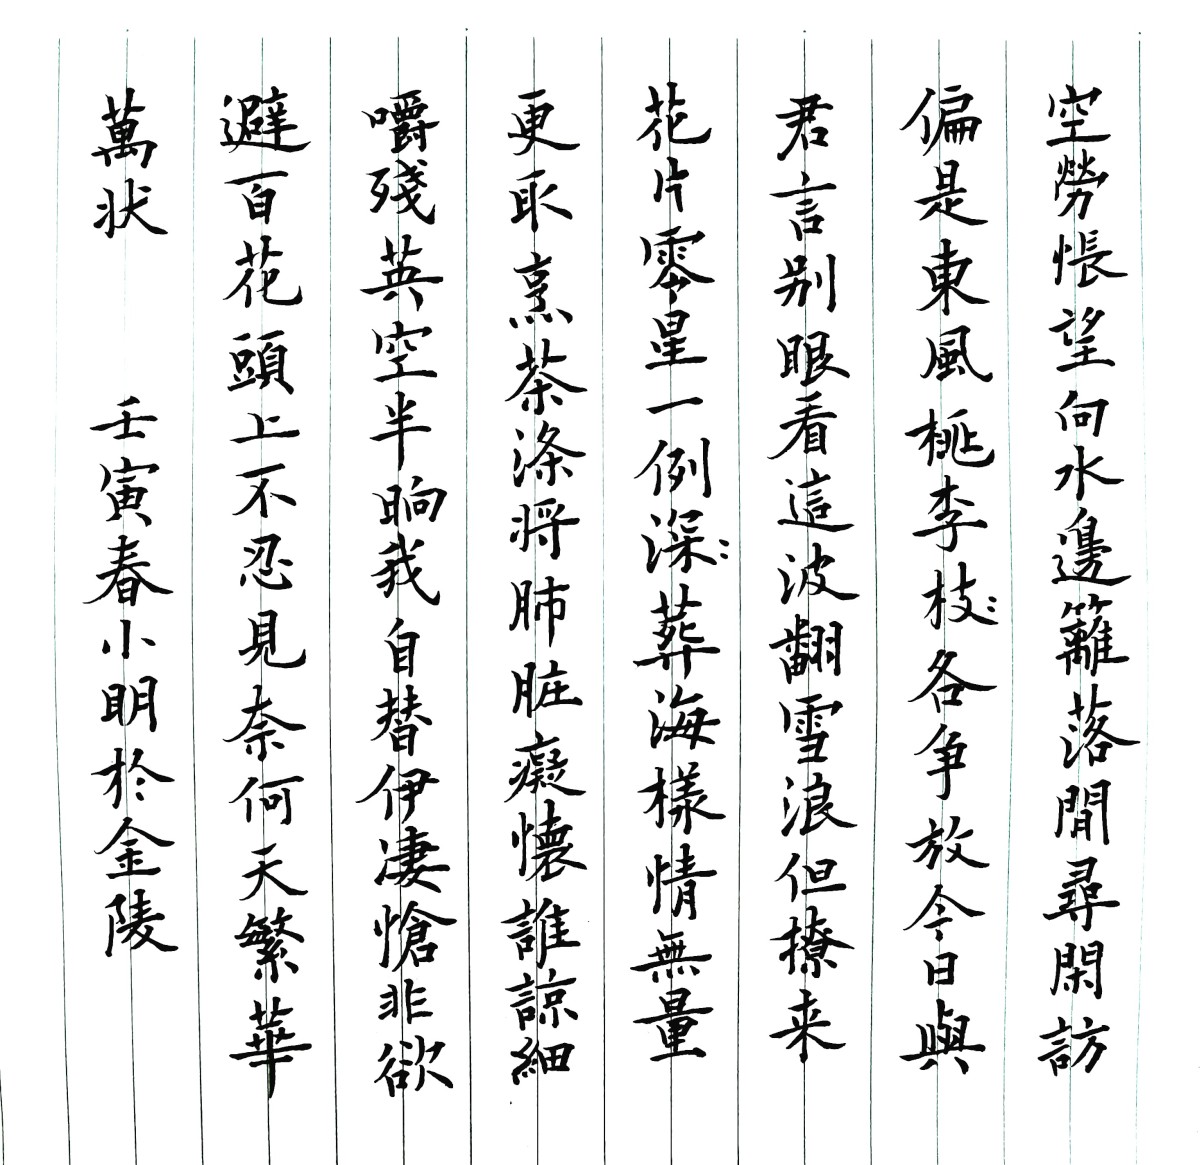 空勞悵望向水邊籬落閒尋閑訪
偏是東風桃李枝〻各争放今日與
君言别眼看這波翻雪浪但撩来
花片零星一例深〻葬海樣情無量
更取烹茶滌将肺脏癡懷誰諒細
嚼殘英空半晌我自替伊凄愴非欲
避百花頭上不忍見奈何天繁華
萬状 壬寅春小明於金陵